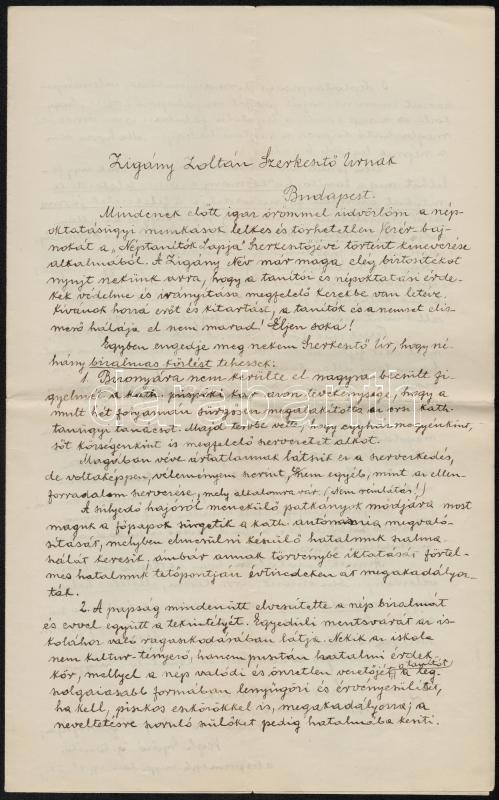 Zigány Zoltán Szerkesztő Urnak
Budapest.
Mindenek előtt igaz örömmel üdvözlöm a nép-
oktatásügyi munkások lelkes és törhetetlen vezér-baj-
nokát a „Néptanítók Lapja” Szerkesztőjévé történt kinevezése
alkalmából. A Zigány Név már maga elég biztosítékot
nyujt nekünk arra, hogy a tanítói és népoktatási érde-
kek védelme és irányítása megfelelő kezekbe van letéve.
Kívánok hozzá erőt és kitartást, a tanítók és a nemzet elis-
merő hálája el nem marad! Éljen soká!
Egyben engedje meg nekem Szerkesztő Úr, hogy né-
hány bizalmas közlést tehessek:
1. Bizonyára nem kerülte el nagyra becsült fi-
gyelmét a kath. püspöki kar azon tevékenysége, hogy a
mult hét folyamán sürgősen megalakította az orsz. kath.
tanügyi tanácsot. Majd tervbe vette, hogy egyházmegyénkint,
sőt községenkint is megfelelő szervezetet alkot.
Magában véve ártatlannak látszik ez a szervezkedés,
de voltaképpen, véleményem szerint, nem egyéb, mint az ellen-
forradalom szervezése, mely alkalomra vár. (Nem rémlátás!)
A sülyedő hajóról menekülő patkányok módjára most
maguk a főpapok sürgetik a kath. autonomia megvaló-
sítását, melyben elmerülni készülő hatalmuk szalma-
szálát keresik, ámbár annak törvénybe iktatását förtel-
mes hatalmuk tetőpontján évtizedeken át megakadályoz-
ták.
2. A papság mindenütt elvesztette a nép bizalmát
és ezzel együtt a tekintélyét. Egyedüli mentsvárát az is-
kolához való ragaszkodásában látja. Nekik az iskola
nem kultur-tényező, hanem pusztán hatalmi érdek-
kör, mellyel a nép valódi és önzetlen vezetőjét, a tanítót a leg-
szolgaiasabb formában lenyűgözi és érvényesülését,
ha kell, piszkos eszközökkel is, megakadályozza, a
neveltetésre szoruló szülőket pedig hatalmába keríti.
darabanth